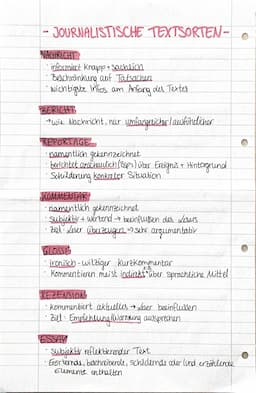 - JOURNALISTISCHE TEXTSORTEN -
NACHRICHT
· informiert knapp + sachlich
· Beschränkung auf Tatsachen
· wichtigste Infos am Anfang des Textes
BERICHT
→ wie Nachricht, nur umfangreicher/ausführlicher
REPORTAGE
· namentlich gekennzeichnet
· berichtet anschaulich über Ereignis + Hintergrund
· Schilderung konkreter Situation
KOMMENTAR
· namentlich gekennzeichnet
· subjektiv + wertend → beeinflussen des Lesers
· Ziel: Leser überzeugen → sehr argumentativ
GLOSSE
· ironisch-witziger Kurzkommentar
· Kommentieren meist indirekt über sprachliche Mittel
REZENSION
· kommentiert aktuelles → Leser beeinflussen
· Ziel: Empfehlung/Warnung aussprechen
ESSAY
· subjektiv reflektierender Text
· erörternde, beschreibende, schildernde oder/und erzählende
Elemente enthalten